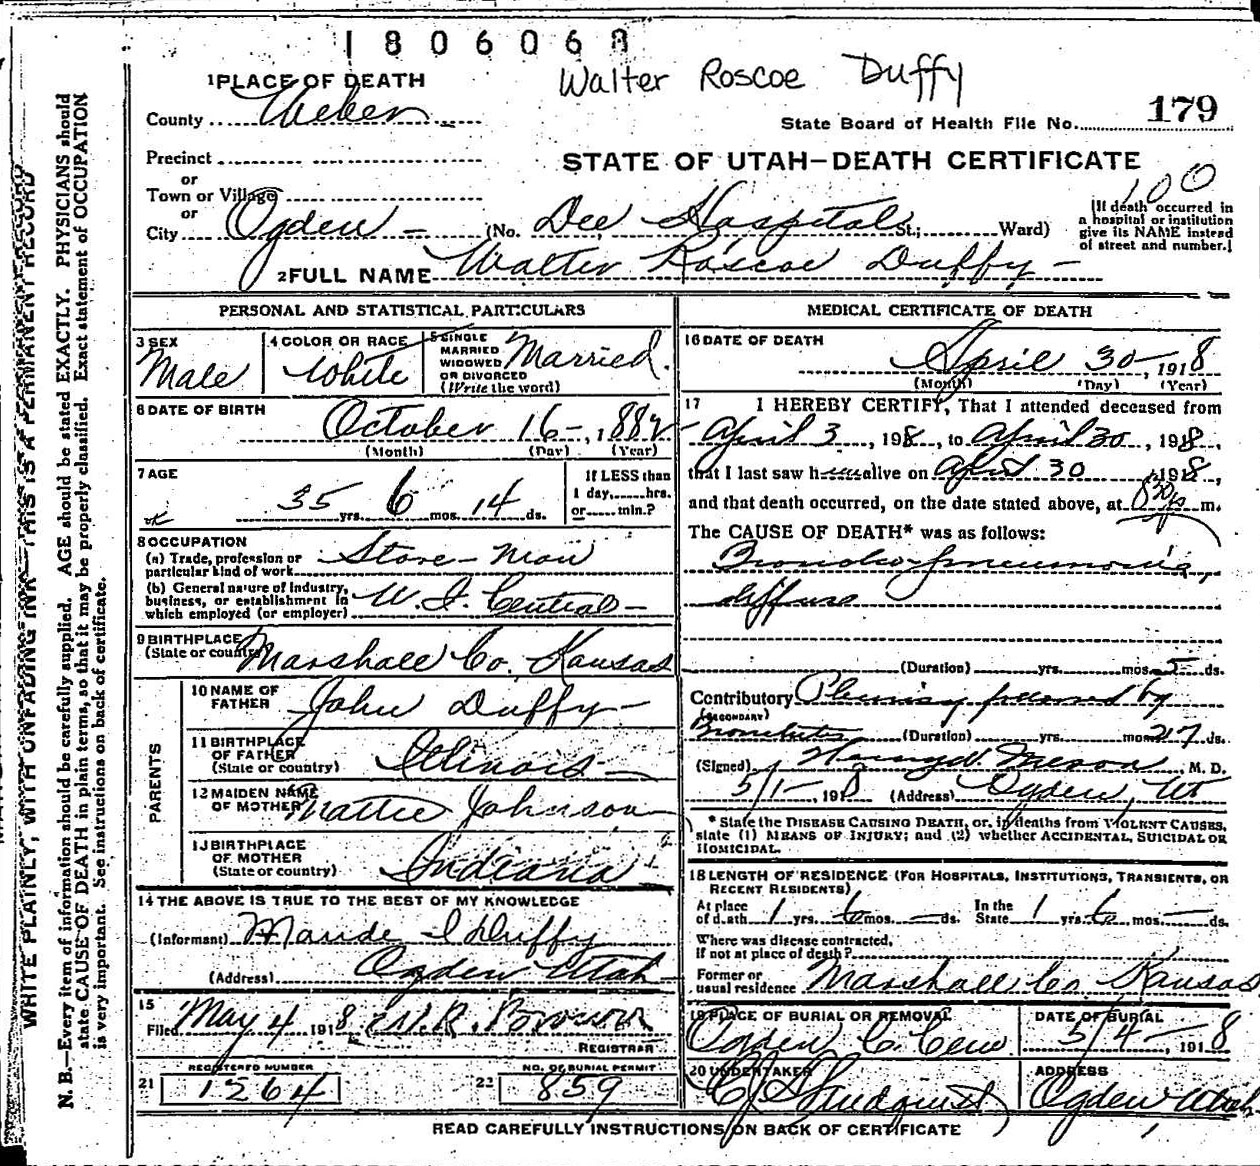 1806068
Walter Roscoe Duffy
1 PLACE OF DEATH
County Weber
179
State Board of Health File No.
Precinct
STATE OF UTAH—DEATH CERTIFICATE
or
Town or Village
100
or
City Ogden (No. Dee Hospital St.; Ward)
[If death occurred in
a hospital or institution
give its NAME instead
of street and number.]
2 FULL NAME Walter Roscoe Duffy
PERSONAL AND STATISTICAL PARTICULARS
3 SEX
Male
4 COLOR OR RACE
White
5 SINGLE
MARRIED
WIDOWED
OR DIVORCED
(Write the word)
Married.
6 DATE OF BIRTH
October 16-, 1882
(Month) (Day) (Year)
7 AGE
35 yrs. 6 mos. 14 ds.
If LESS than
1 day,......hrs.
or......min.?
8 OCCUPATION
(a) Trade, profession or
particular kind of work
Store-man
(b) General nature of industry,
business, or establishment in
which employed (or employer)
Central
9 BIRTHPLACE
(State or country)
Marshall Co. Kansas
PARENTS
10 NAME OF
FATHER
John Duffy
11 BIRTHPLACE
OF FATHER
(State or country)
Illinois
12 MAIDEN NAME
OF MOTHER
Mattie Johnson
13 BIRTHPLACE
OF MOTHER
(State or country)
Indiana
14 THE ABOVE IS TRUE TO THE BEST OF MY KNOWLEDGE
(Informant) Maude I Duffy
(Address) Ogden Utah
15
Filed May 4 1918 Brown
REGISTRAR
REGISTERED NUMBER
21 1264
NO. OF BURIAL PERMIT
22 859
MEDICAL CERTIFICATE OF DEATH
16 DATE OF DEATH
April 30-, 1918
(Month) (Day) (Year)
17 I HEREBY CERTIFY, That I attended deceased from
April 3, 198, to April 30, 1918,
that I last saw h alive on April 30, 1918,
and that death occurred, on the date stated above, at m.
The CAUSE OF DEATH* was as follows:
Broncho pneumonia,
diffuse
(Duration) yrs. mos. 5 ds.
Contributory Pleurisy preceded by
(SECONDARY)
Bronchitis (Duration) yrs. mos. 27 ds.
(Signed) M. D.
5/1- 1918 (Address) Ogden, Ut
* State the DISEASE CAUSING DEATH, or, in deaths from VIOLENT CAUSES,
state (1) MEANS OF INJURY; and (2) whether ACCIDENTAL, SUICIDAL OR
HOMICIDAL.
18 LENGTH OF RESIDENCE (FOR HOSPITALS, INSTITUTIONS, TRANSIENTS, OR
RECENT RESIDENTS)
At place
of death 1 yrs. 6 mos. — ds.
In the
State 1 yrs. 6 mos. — ds.
Where was disease contracted,
if not at place of death?
Former or
usual residence Marshall Co. Kansas
19 PLACE OF BURIAL OR REMOVAL
Ogden C. Cem
DATE OF BURIAL
5/4-, 1918
20 UNDERTAKER
ADDRESS
Ogden Utah
READ CAREFULLY INSTRUCTIONS ON BACK OF CERTIFICATE
WRITE PLAINLY, WITH UNFADING INK—THIS IS A PERMANENT RECORD
N. B.—Every item of information should be carefully supplied. AGE should be stated EXACTLY. PHYSICIANS should
state CAUSE OF DEATH in plain terms, so that it may be properly classified. Exact statement of OCCUPATION
is very important. See instructions on back of certificate.